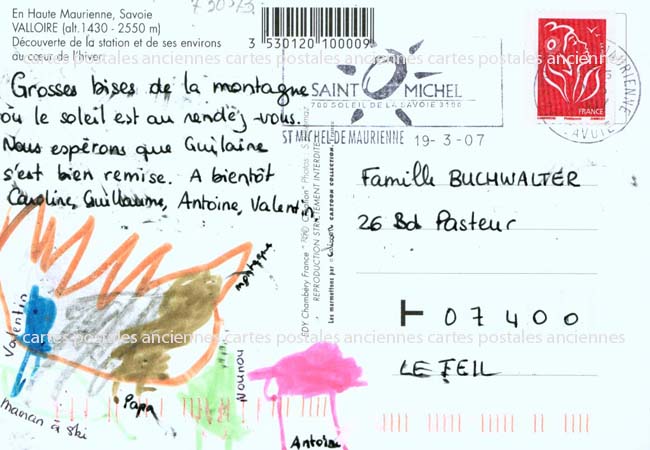 73053
En Haute Maurienne, Savoie
VALLOIRE (alt.1430 - 2550 m)
Découverte de la station et de ses environs
au cœur de l'hiver
3 530120 100009
Grosses bises de la montagne
où le soleil est au rendez-vous.
Nous espérons que Guilaine
s'est bien remise. A bientôt
Caroline, Guillaume, Antoine, Valentin
SAINT MICHEL
700 SOLEIL DE LA SAVOIE 3100
ST MICHEL DE MAURIENNE 19-3-07
MAURIENNE
SAVOIE
FRANCE
cartes postales anciennes cartes postales anciennes cartes postales anciennes
EDY Chambéry France
REPRODUCTION STRICTEMENT INTERDITE
Les marmottes par CARTOON COLLECTION
Famille BUCHWALTER
26 Bd Pasteur
07400
LE TEIL
montagne
Valentin
maman à ski
Papa
Nounou
Antoine
cartes postales anciennes cartes postales anciennes cartes postales anciennes